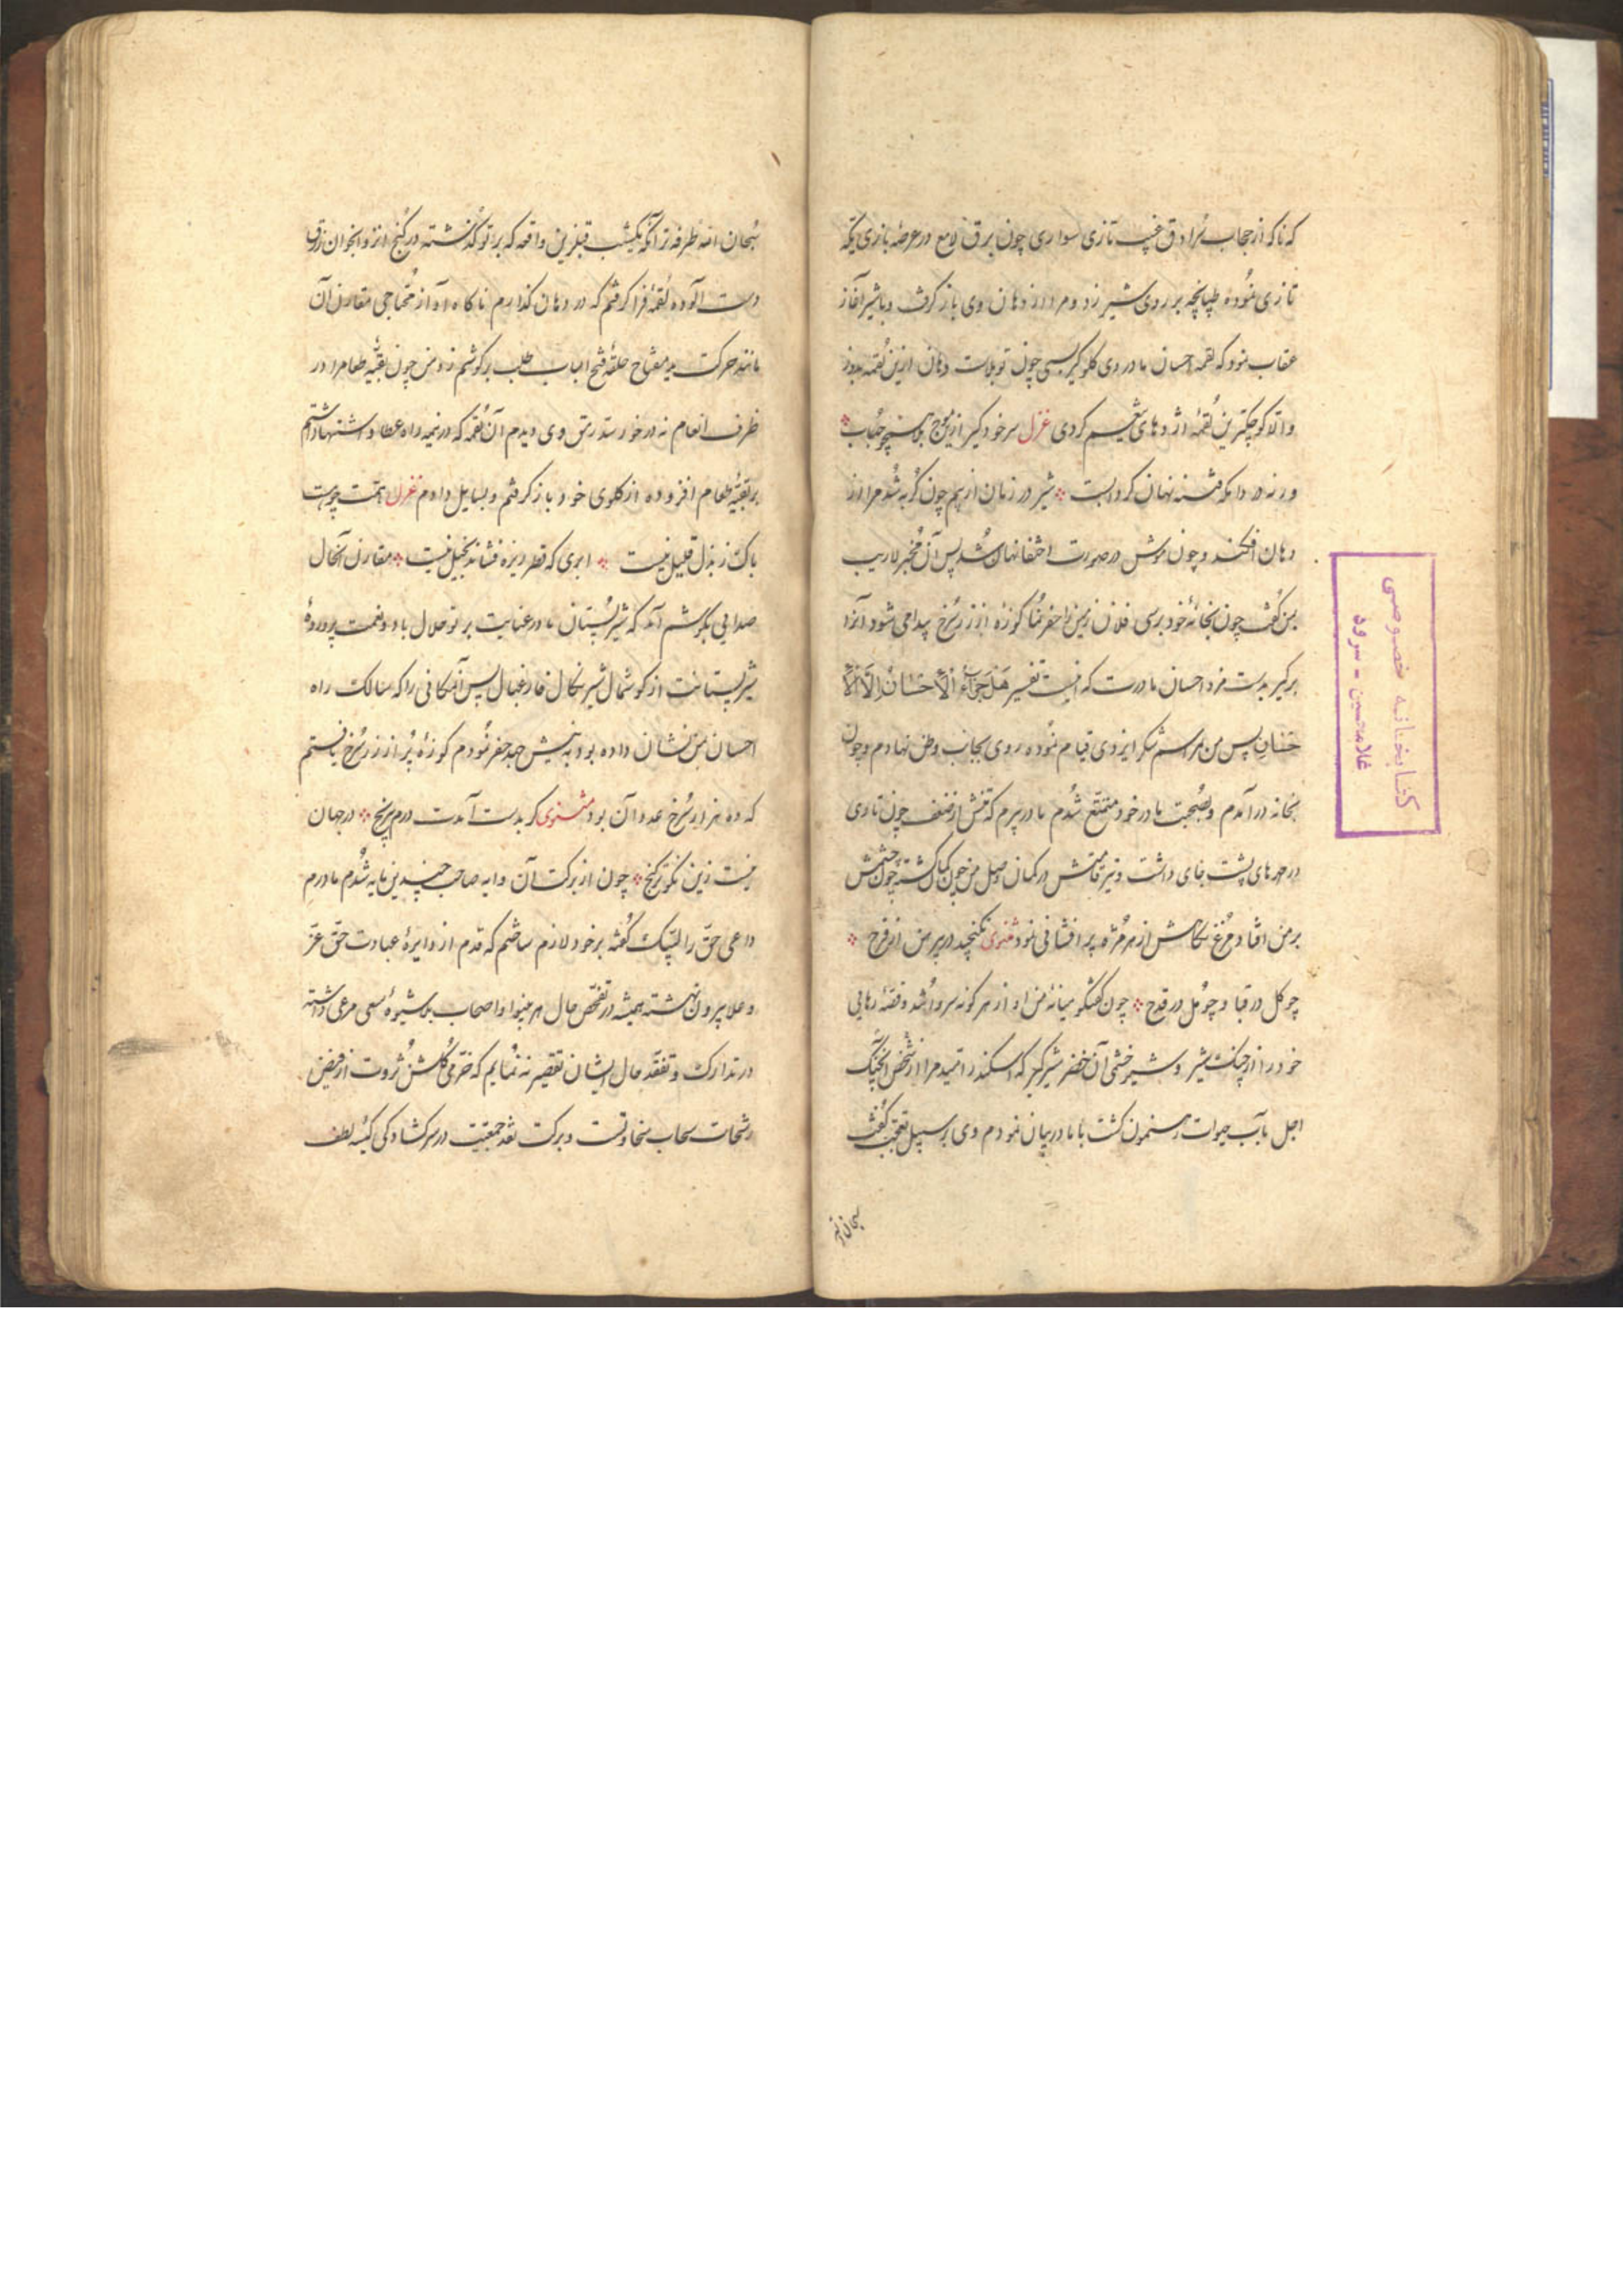 که ناکه از حجاب سُرادق غیب تازی سواری چون برق لامع در عرصه بازی یکه
تازی نموده طپانچه بر روی شیر زد و مرا از دهان وی باز گرفت و با شیر آغاز
عتاب نمود که لقمه احسان مادر وی گلوگیر بسی چون تو بلاست دهان ازین لقمه بدوز
والا کوچکترین لقمهٔ اژدهای کردی غزل سر خود گیر ازین موج حباب
ورنه در دامکه فتنه نهان گرداب است شیر در زمان از بیم چون گربه شد مرا از
دهان افکند و چون موش در صورت اختفا نهان شد پس آن مخبر لاریب
بمن گفت چون بخانهٔ خود برسی فلان زمین را حفر نما کوزهٔ از زر سُرخ پیدا می شود آنرا
برگیر بدست مزد احسان مادرت که اینست تفسیر هَل جَزاءُ الْاِحْسَانِ اِلَّا الْاِ
حْسَانِ پس من مراسم شکر ایزدی قیام نموده روی بجانب وطن نهادم و چون
بخانه درآمدم و بصُحبت مادر خود متمتع شدم مادر پیرم که تنش از ضعف چون تاری
در جای داشت و تیر قامتش در کمان من چون کباب گشته چون چشمش
بر من افتاد مرغ نگاهش از هر مژه پر افشانی نمود مثنوی نگنجید در پیرهن از فرح
چو گل در قبا و چو مُل در قدح چون گفتگو میانهٔ من و او از هر گونه سرو شد و قصهٔ رهایی
خود را از چنگ شیر و شیر خشمی آن خضر شیرگیر که اسکندر امید مرا از
اجل بآب حیوات رهنمون گشت با مادر بیان نمودم وی بر سبیل تعجب گفت
سبحان الله
سُبحان الله طرفه تر آنکه یکشب قبل ازین واقعه که بر تو گذشته در کنج انزوا بخوان رزق
دست آلوده لقمه فرا گرفتم که در دهان گذارم ناگاه آواز محتاجی مقارن آن
مانند حرکت مفتاح حلقهٔ فتح الباب طلب بر گوشم زد من چون بقیه طعام را در
ظرف انعام نه در خور سد رمق وی دیدم آن لقمه که در نیمه راه عطا و اشتها داشتم
بر بقیهٔ طعام افزوده از گلوی خود باز گرفتم و بسایل دادم غزل همّت چو هست
باک ز بذل قلیل نیست ابری که قطره ریزه فشاند بخیل نیست مقارن آنحال
صدایی بگوشم آمد که شیر پستان مادر عنایت بر تو حلال باد و نعمت پروردهٔ
شیر پستانت از گوشمال شیر نکال فارغبال پس آن مکانی را که سالک راه
احسان بمن نشان داده بود به نیش جهد حفر نمودم کوزهٔ پُر از زر سُرخ یافتم
که ده هزار سُرخ عدد آن بود مثنوی گر بدست آمدت درم بپرنج در جهان
نیست زین نکوتر گنج چون از برکت آن دایه صاحب چندین مایه شدم مادرم
داعی حق را لبّیک گفته بر خود لازم ساختم که قدم از دایرهٔ عبادت حق عزّ
و علا بیرون نهشته همیشه در تفحّص حال هر بینوا و اصحاب شیوهٔ سعی مرعی داشته
در تدارک و تفقد حال ایشان تقصیر ننمایم که خرّمی گلشن ثروت از فیض
رشحات سحاب سخاوتست و برکت نقد جمعیّت در سرگشادگی کیسه لطف
کتابخانه خصوصی
غلامحسین - سرود